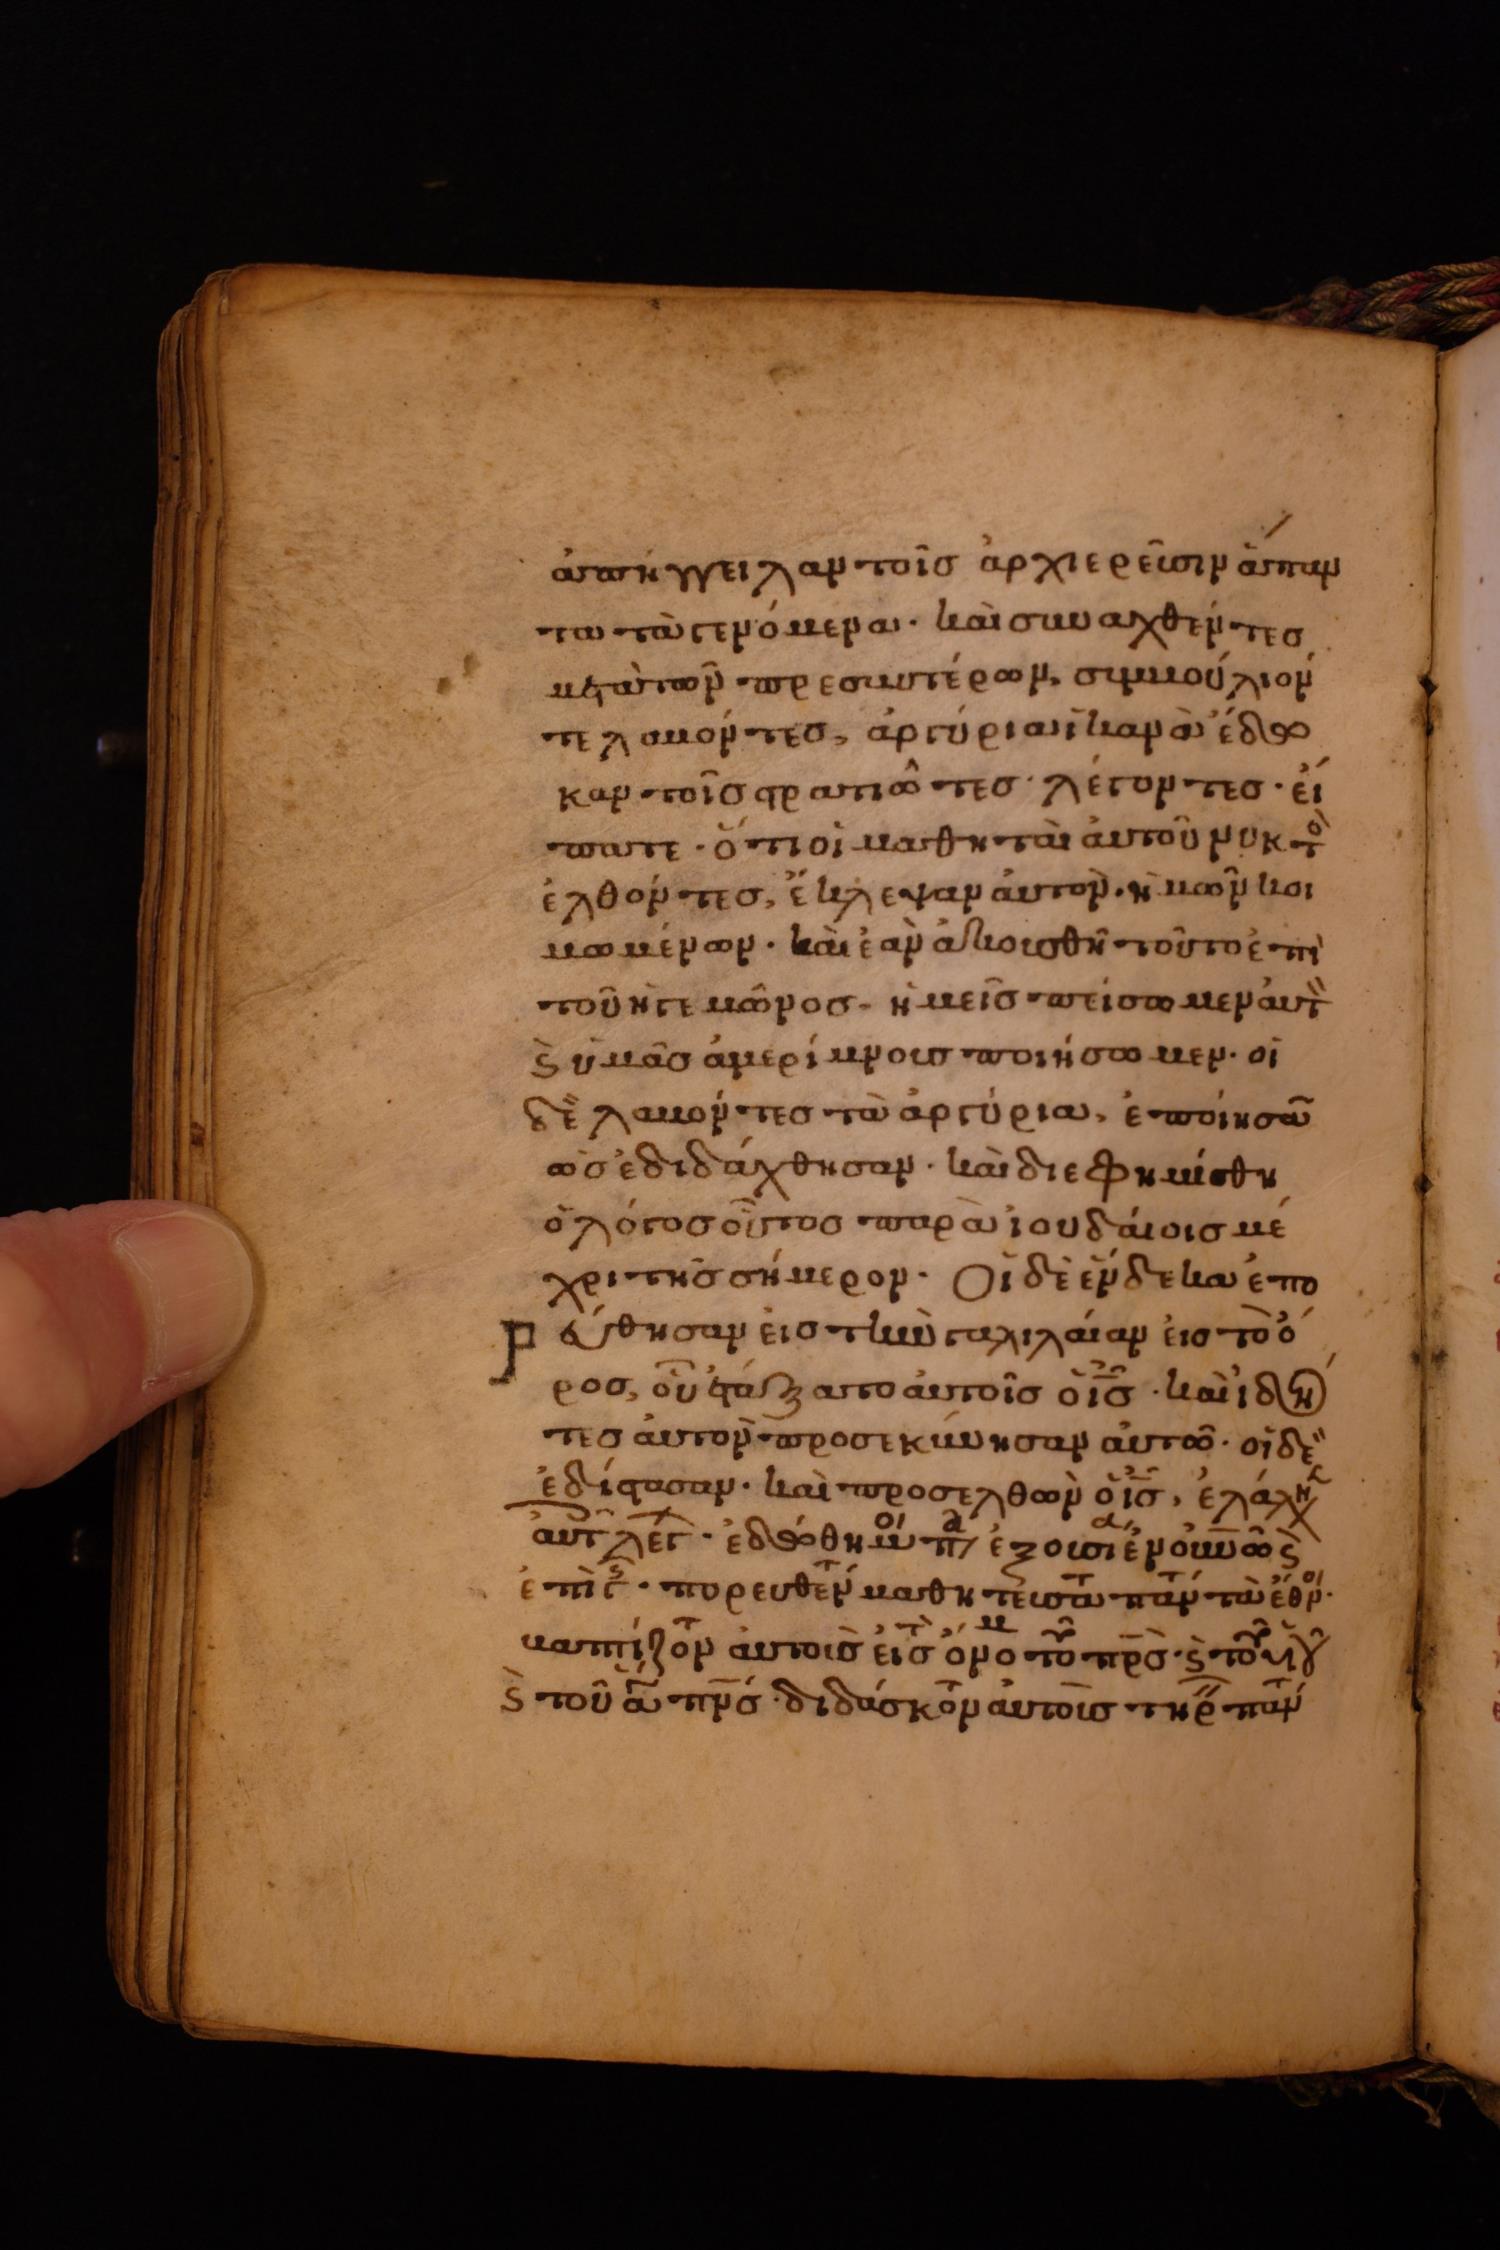 ἀπήγγειλαν τοῖς ἀρχιερεῦσιν ἅπαν
τα τὰ γενόμενα· καὶ συναχθέντες
μετὰ τῶν πρεσβυτέρων, συμβούλιον
τε λαβόντες, ἀργύρια ἱκανὰ ἔδω
καν τοῖς στρατιώταις· λέγοντες· εἴ
πατε· ὅτι οἱ μαθηταὶ αὐτοῦ νυκτὸ
ἐλθόντες, ἔκλεψαν αὐτὸν· ἡμῶν κοι
μωμένων· καὶ ἐὰν ἀκουσθῇ τοῦτο ἐπὶ
τοῦ ἡγεμῶνος· ἡμεῖς πείσωμεν αὐτ
ϛ ὑμᾶς ἀμερίμνους ποιήσωμεν· οἱ
δὲ λαβόντες τὰ ἀργύρια, ἐποίησα
ὡς ἐδιδάχθησαν· καὶ διεφημίσθη
ὁ λόγος οὗτος παρὰ ἰουδαίοις μέ
χρι τῆς σήμερον· Οἱ δὲ ἕνδεκα ἐπο
ρεύθησαν εἰς τὴν γαλιλαίαν εἰς τὸ ὄ
ρος, οὗ ἐτάξατο αὐτοῖς ὁ ἰς· καὶ ἰδόν
τες αὐτὸν προσεκύνησαν αὐτῶ· οἱ δὲ
ἐδίστασαν· καὶ προσελθὼν ὁ ἰς, ἐλάλη
αὐτ λέγ· ἐδόθη μοι πα ἐξουσία ἐν οὐνῶ ϛ
ἐπὶ γ· πορευθέντ μαθητεύσατ πάντ τὰ ἔθν·
βαπτίζοντ αὐτοὺς εἰς τὸ ὄνομ τοῦ πρς· ϛ τοῦ υἱοῦ
ϛ τοῦ ἁ πνς· διδάσκοντ αὐτοὺς τηρ πάντ